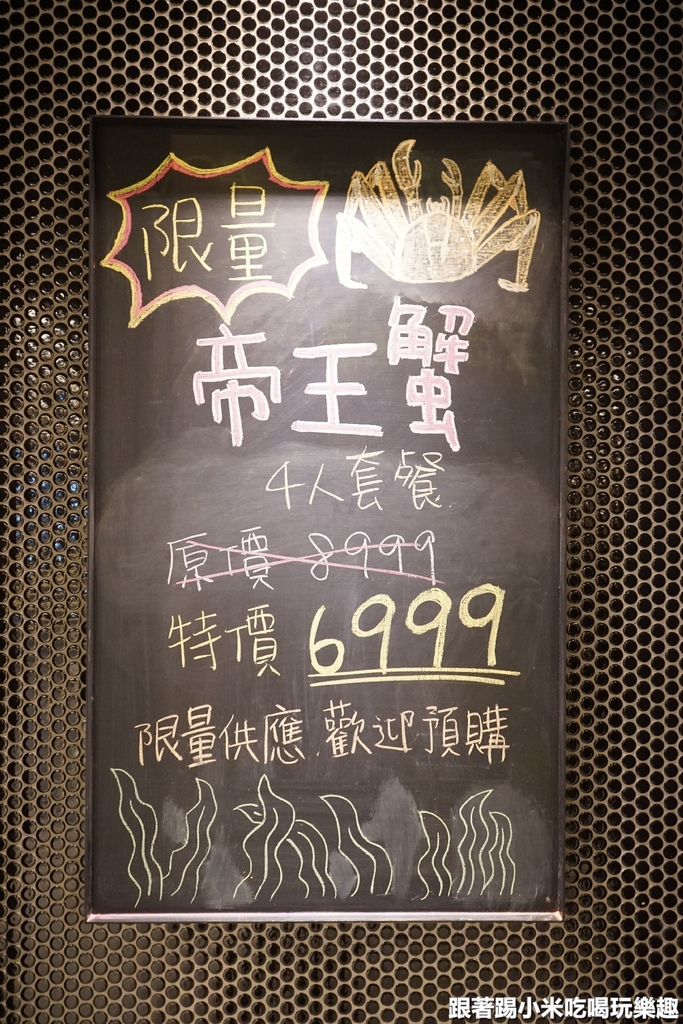 限量
帝王蟹
4人套餐
原價 8999
特價 6999
限量供應 歡迎預購
跟著踢小米吃喝玩樂趣